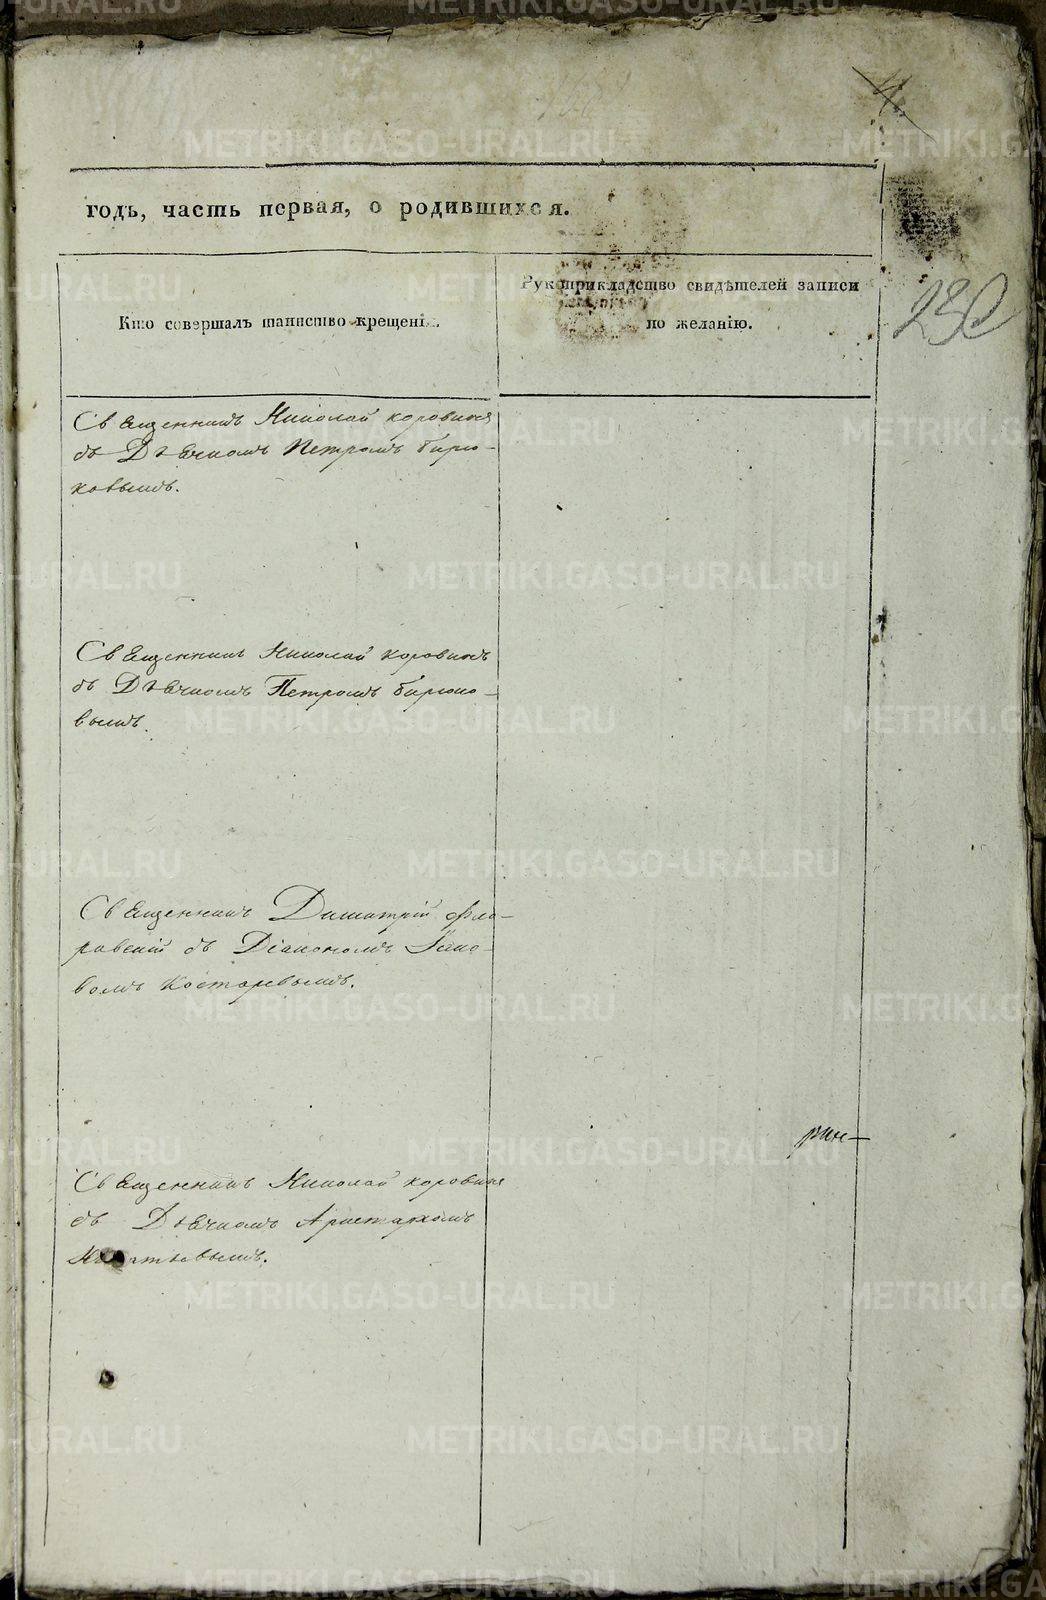 4.
годъ, часть первая, о родившихся.
Кто совершалъ таинство крещенія.
Рукоприкладство свидѣтелей записи
по желанію.
230
Священникъ Николай Коровинъ
съ Дьячкомъ Петромъ Бирю-
ковымъ.
Священникъ Николай Коровинъ
съ Дьячкомъ Петромъ Бирюко-
вымъ.
Священникъ Димитрій Фло-
ровскій съ Діакономъ Іако-
вомъ Костаревымъ.
рин-
Священникъ Николай Коровинъ
съ Дьячкомъ Аристархомъ
METRIKI.GASO-URAL.RU